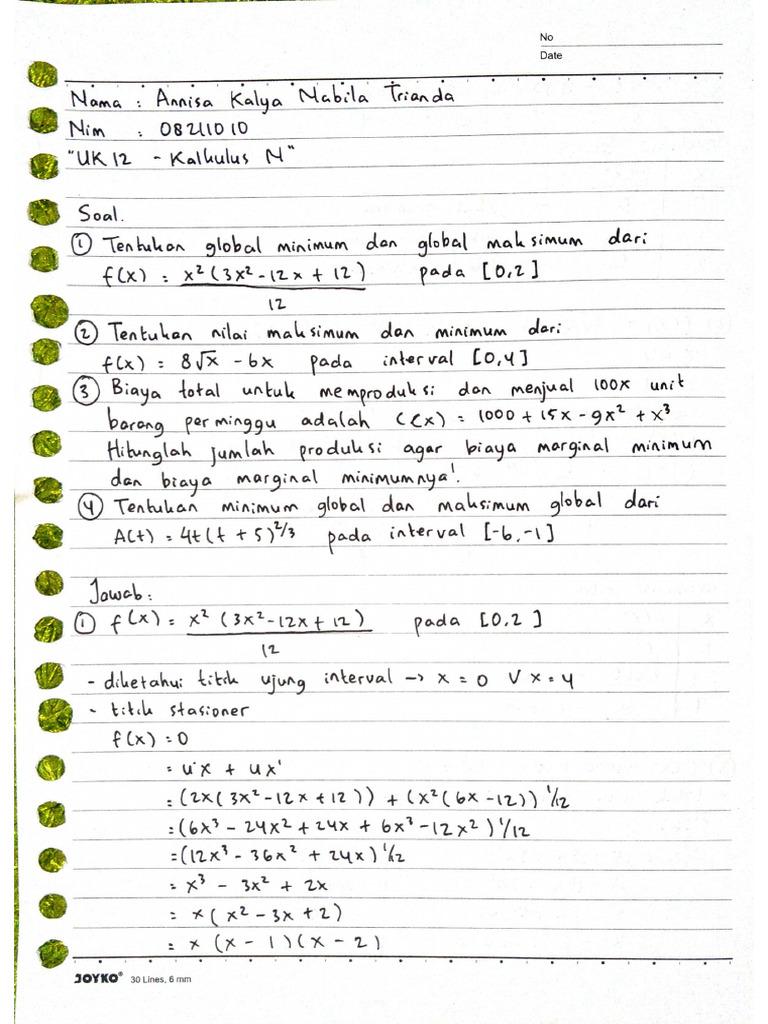 No
Date
Nama : Annisa Kalya Nabila Trianda
Nim : 08211010
"UK 12 - Kalkulus N"
Soal.
① Tentukan global minimum dan global maksimum dari
f(x) = x²(3x²-12x + 12) pada [0,2]
12
② Tentukan nilai maksimum dan minimum dari
f(x) = 8√x - 6x pada interval [0,4]
③ Biaya total untuk memproduksi dan menjual 100x unit
barang perminggu adalah C(x) = 1000 + 15x - 9x² + x³
Hitunglah jumlah produksi agar biaya marginal minimum
dan biaya marginal minimumnya!
④ Tentukan minimum global dan maksimum global dari
A(t) = 4t(t + 5)^2/3 pada interval [-6,-1]
Jawab:
① f(x) = x² (3x²-12x + 12) pada [0,2]
12
- diketahui titik ujung interval → x = 0 V x = 4
- titik stasioner
f(x) = 0
= u'x + ux'
= (2x(3x²-12x+12)) + (x²(6x-12)) 1/12
= (6x³ - 24x² + 24x + 6x³ - 12x²) 1/12
= (12x³ - 36x² + 24x) 1/12
= x³ - 3x² + 2x
= x(x² - 3x + 2)
= x (x - 1)(x - 2)
JOYKO® 30 Lines, 6 mm